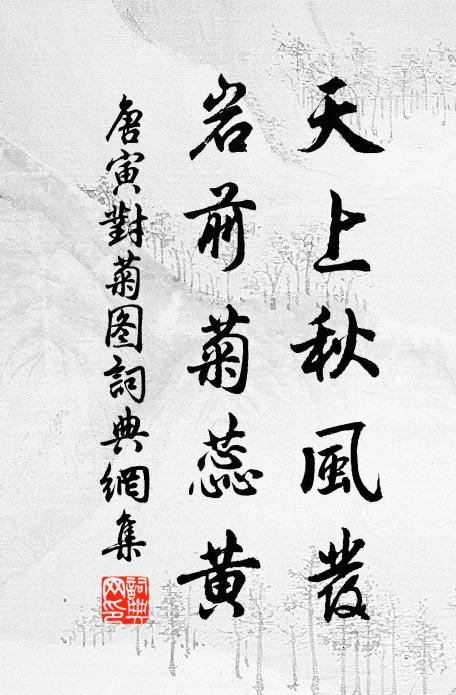 天上秋風發
岩前菊蕊黃
唐寅對菊图詞典網集
詞典網印